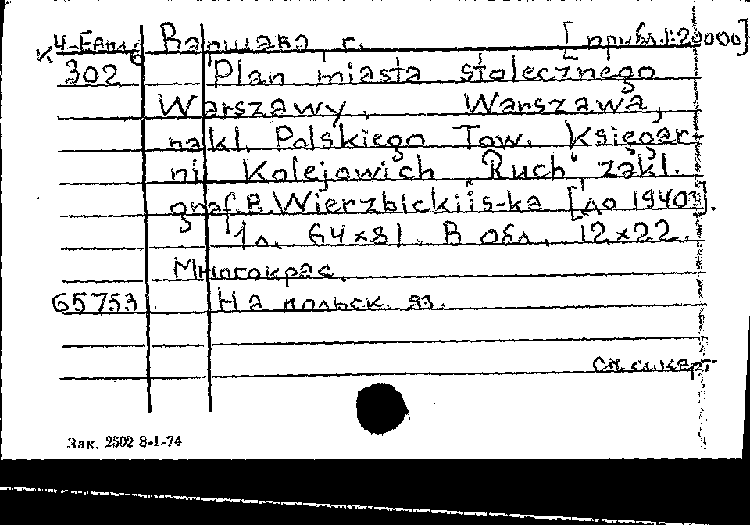 К 4-Евп Варшава, г. [прибл.1:20000]
302 Plan miasta stołecznego
Warszawy. Warszawa,
nakł. Polskiego Tow. Księgar-
nii Kolejowich „Ruch“, zakł.
graf. B. Wierzbickii s-ka [до 1940].
1 л. 64x81. В обл. 12x22.
Многокрас.
65753 На польск. яз.
См.
Зак. 2502 8-1-74